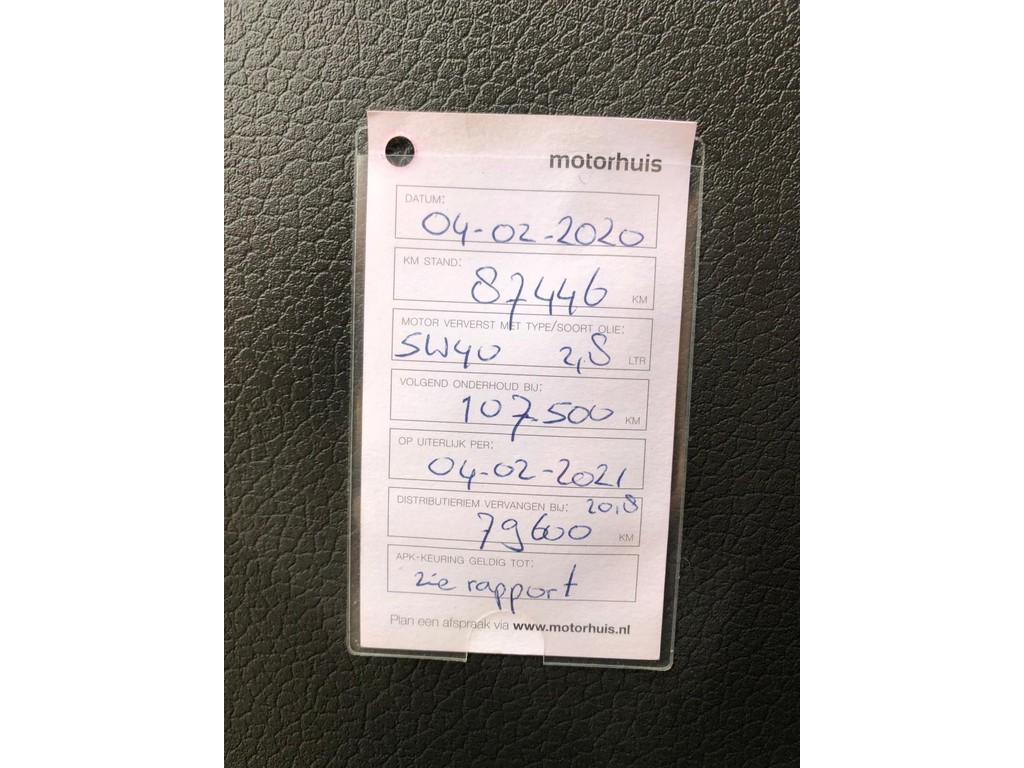 motorhuis
DATUM:
04-02-2020
KM STAND:
87446 KM
MOTOR VERVERST MET TYPE/SOORT OLIE:
5W40 2,8 LTR
VOLGEND ONDERHOUD BIJ:
107.500 KM
OP UITERLIJK PER:
04-02-2021
DISTRIBUTIERIEM VERVANGEN BIJ: 2018
79600 KM
APK-KEURING GELDIG TOT:
zie rapport
Plan een afspraak via www.motorhuis.nl